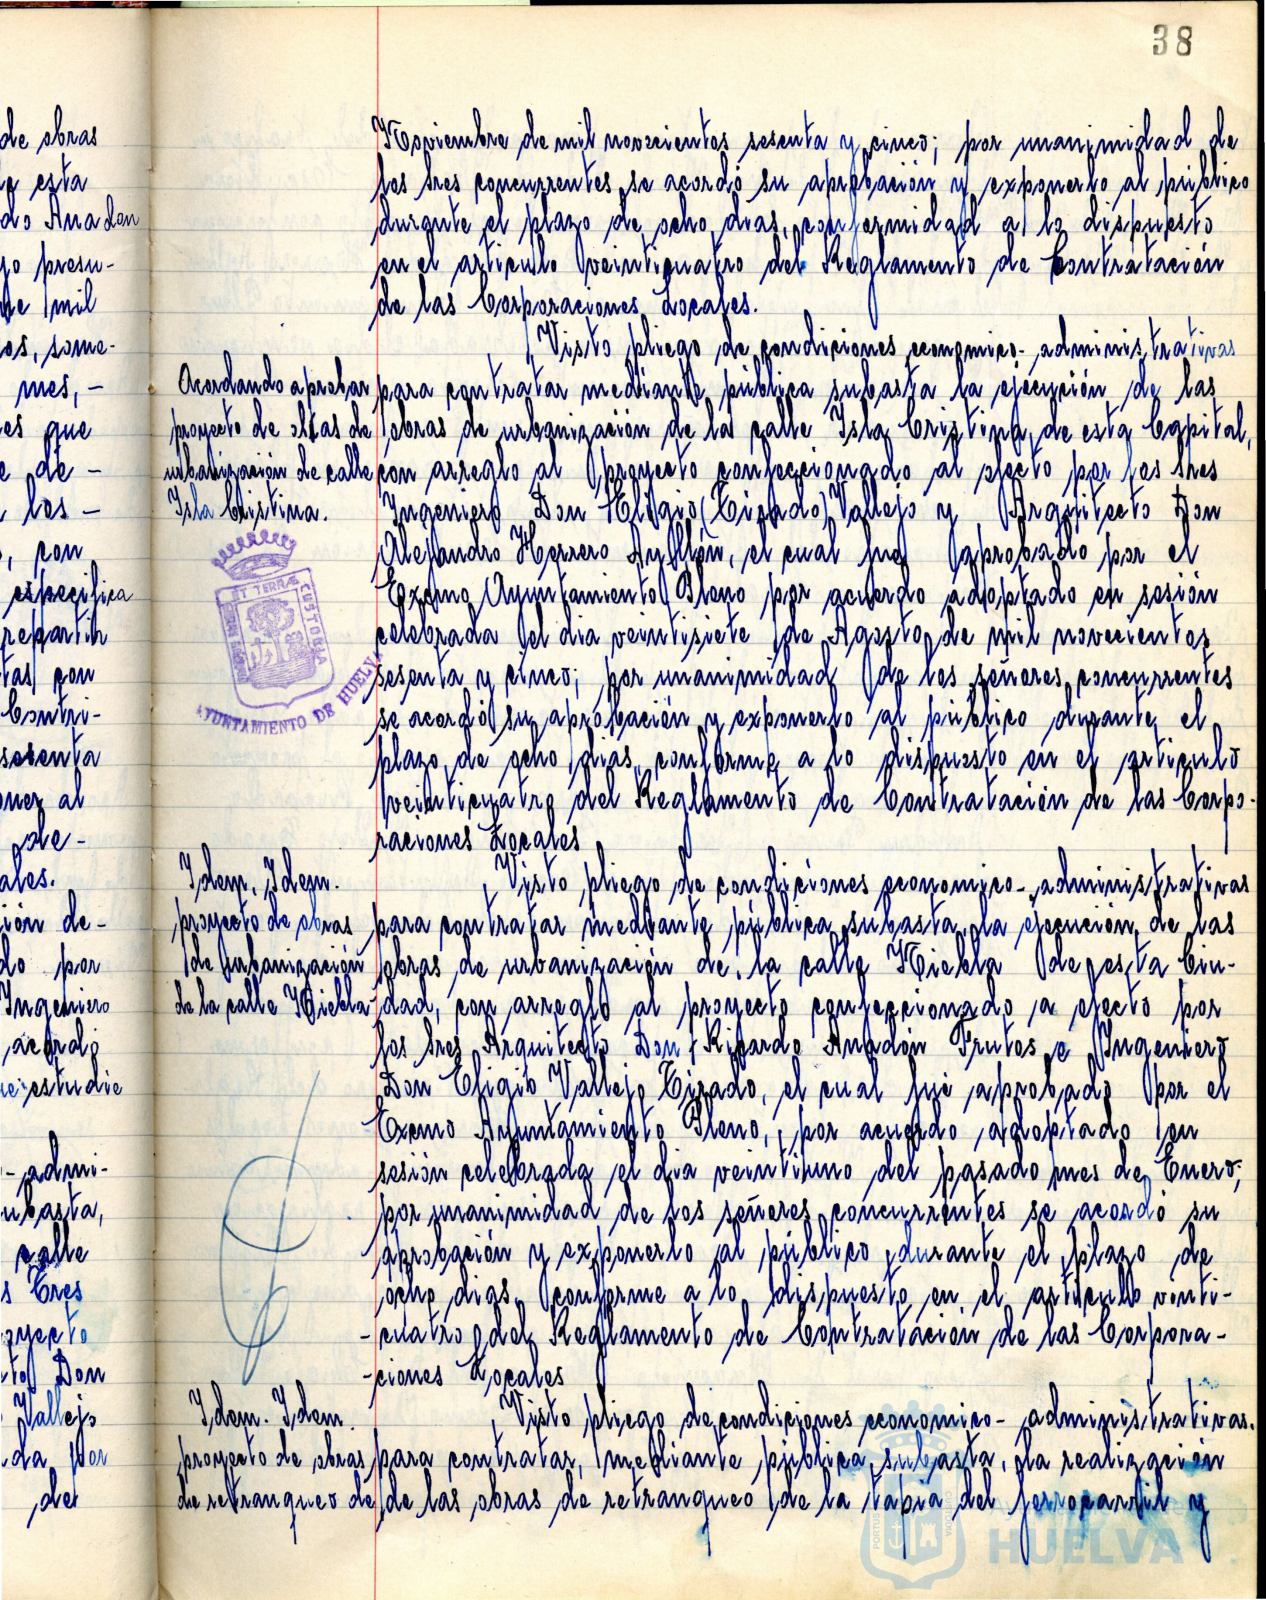 38
de obras
esta
do Anadon
jo presu-
de mil
os, some-
mes, -
es que
e de -
los -
, con
especifica
repartir
tas con
Contri-
sesenta
oner al
de -
ales.
ión de-
do por
Ingeniero
acordó
ue estudie
- admi-
ubasta,
calle
s Tres
oyecto
to Don
Vallejo
da por
del
Noviembre de mil novecientos sesenta y cinco; por unanimidad de
los sres concurrentes se acordó su aprobación y exponerlo al público
durante el plazo de ocho dias, conformidad a lo dispuesto
en el articulo veinticuatro del Reglamento de Contratación
de las Corporaciones Locales.
Visto pliego de condiciones economico-administrativas
Acordando aprobar
proyecto de obras de
urbanización de calle
Isla Cristina.
para contratar mediante pública subasta la ejecución de las
obras de urbanización de la calle Isla Cristina, de esta Capital,
con arreglo al proyecto confeccionado al efecto por los sres
Ingeniero Don Eligio (Tirado) Vallejo y Arquitecto Don
Alejandro Herrero Ayllón, el cual fue aprobado por el
Excmo Ayuntamiento Pleno por acuerdo adoptado en sesión
celebrada el dia veintisiete de Agosto de mil novecientos
sesenta y cinco; por unanimidad de los señores concurrentes
se acordó su aprobación y exponerlo al público durante el
plazo de ocho dias, conforme a lo dispuesto en el articulo
veinticuatro del Reglamento de Contratación de las Corpo-
raciones Locales
ET TERRÆ CUSTODIA
AYUNTAMIENTO DE HUELVA
Idem. Idem.
proyecto de obras
de urbanización
de la calle Niebla
Visto pliego de condiciones economico-administrativas
para contratar mediante pública subasta, la ejecución de las
obras de urbanización de la calle Niebla de esta Ciu-
dad, con arreglo al proyecto confeccionado a efecto por
los sres Arquitecto Don Ricardo Anadón Frutos e Ingeniero
Don Eligio Vallejo Tirado, el cual fué aprobado por el
Excmo Ayuntamiento Pleno, por acuerdo adoptado en
sesión celebrada el dia veintiuno del pasado mes de Enero;
por unanimidad de los señores concurrentes se acordó su
aprobación y exponerlo al público durante el plazo de
ocho dias, conforme a lo dispuesto en el articulo venti-
-cuatro del Reglamento de Contratación de las Corpora-
-ciones Locales
Idem. Idem
proyecto de obras
de retranqueo de
Visto pliego de condiciones economico-administrativas.
para contratar, mediante pública subasta, la realización
de las obras de retranqueo de la tapia del ferrocarril y
HUELVA